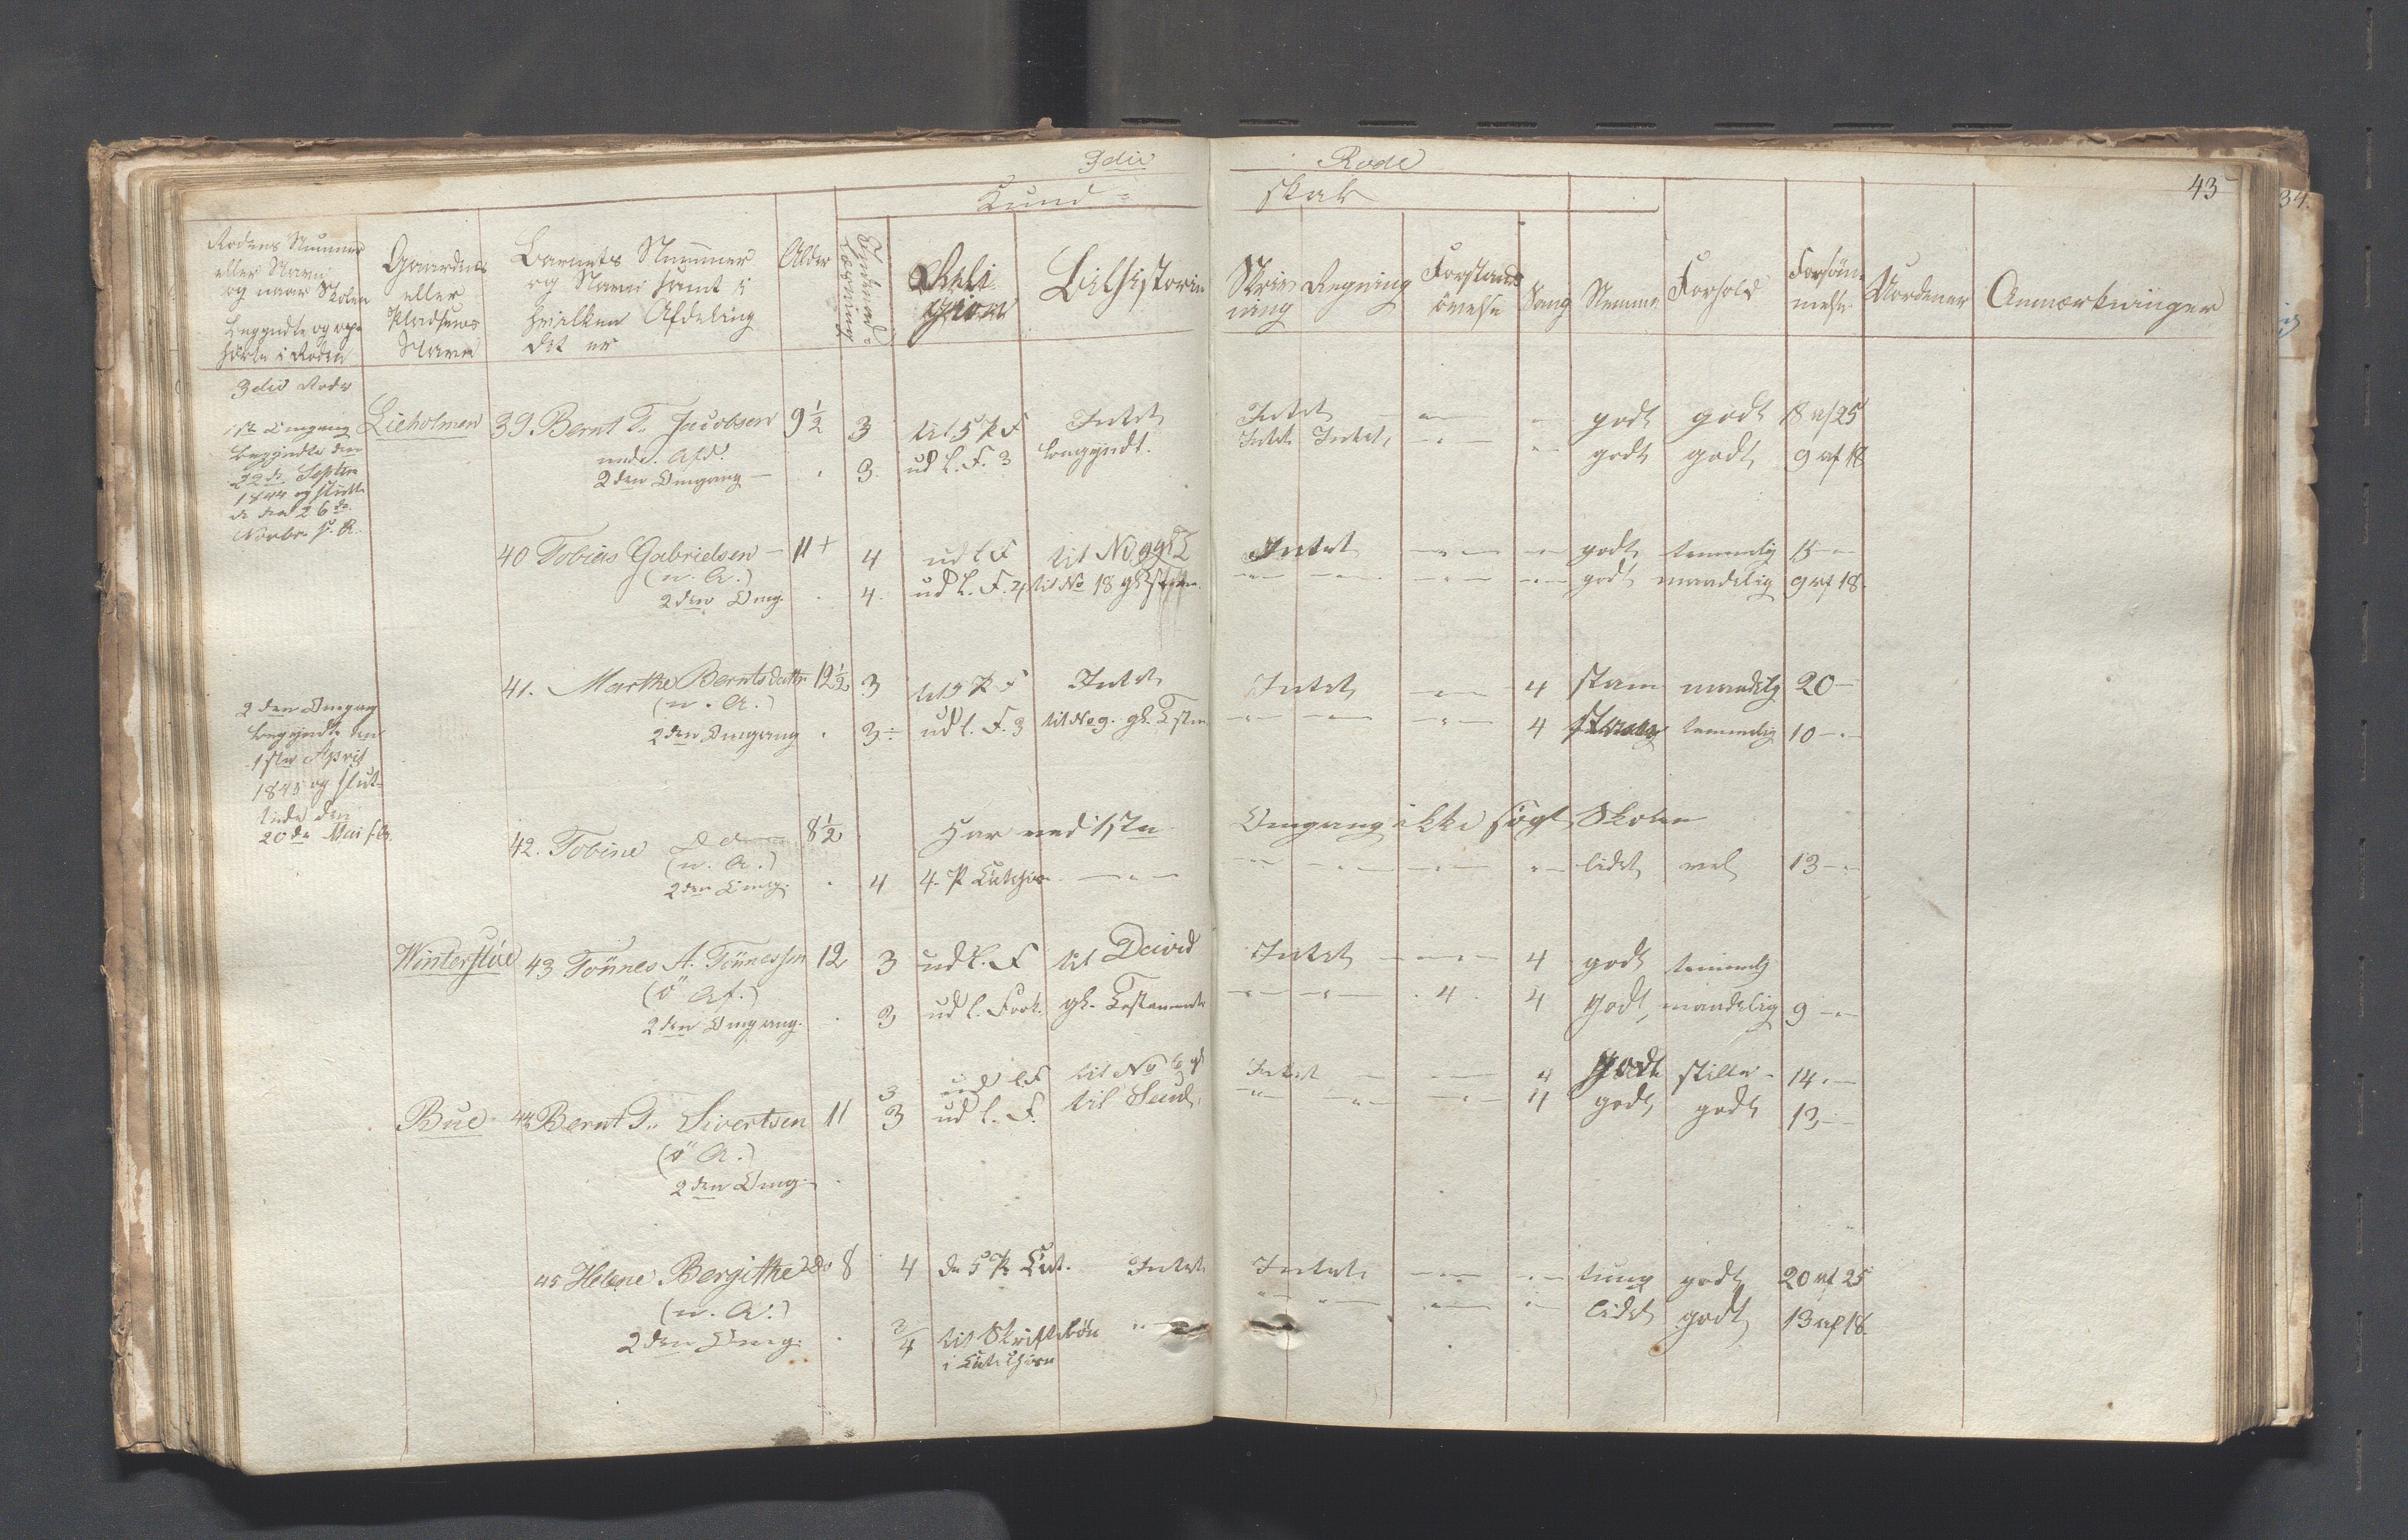 3die Rode
43
Kund- skab
Rodens Nummer eller Navn og naar Skolen begyndte og ophørte i Roden
Gaardens eller Pladsens Navn
Barnets Nummer og Navn samt i hvilken Afdeling det er
Alder
Religion
Bibelhistorie
Skrivning
Regning
Forstands øvelse
Sang
Nemme
Forhold
Forsømmelse
Uordener
Anmærkninger
3die Rode
1ste Omgang
begyndte den
22de Septbr
1844 og slutte-
de den 26de
Novbr s. A.
Lieholmen 39. Bernt T. Jacobsen 9½ 3 til 5 P F Intet Intet godt godt 18 af 25
ned. Afd.
2den Omgang 3. ud l. F. 3 begyndt. Intet Intet godt godt 9 af 18
40 Tobias Gabrielsen 11+ 4 ud l F Intet godt temmelig 15
(n. A.)
2den Omg. 4. ud l. F. 4 til No 18 godt maadelig 9 af 18.
41. Marthe Berntsdatter 12½ 3 til 5 P F Intet Intet 4 stam maadelig 20
(n. A.)
2den Omgang 3 ud l. F. 3 til No 9. 4 temmelig 10
2den Omgang
begyndte den
1ste April
1845 og slut-
tede den
20de Mai s. A.
42. Tobine 8½ Har ved 1ste Omgang ikke søgt Skolen
(n. A.)
2den Omg. 4 4. P lidet vel 13
Winterstøe 43 Tönnes A. Tönnessen 12 3 ud l. F til David Intet 4 godt temmelig
(ö Af.)
2den Omgang. 3 ud l. Fork. gl. Testamente 4. 4 godt maadelig 9
3 ud l. F til No Intet 4 godt stille 14
Bue 44 Bernt T. Sivertsen 11 3 ud l. F. til 4 godt godt 13
(ö A.)
2den Omg.
45 Helene Bergithe do 8 4 de 5 P. Intet Intet tung godt 20 af 25
(n. A.)
2den Omg. 4 til Skriftebön lidet godt 13 af 18.